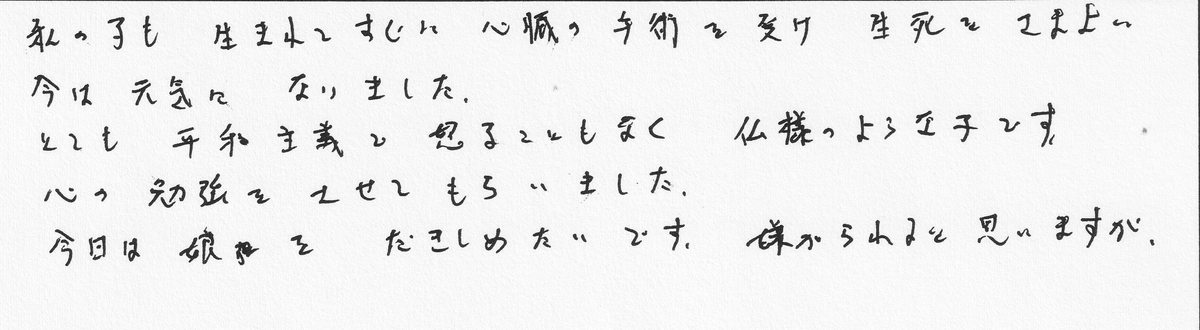 私の子も 生まれてすぐに 心臓の手術を受け 生死をさまよい
今は元気に なりました。
とても 平和主義で 怒ることもなく 仏様のような子です。
心の勉強を させてもらいました。
今日は 娘を だきしめたいです。 嫌がられると思いますが。